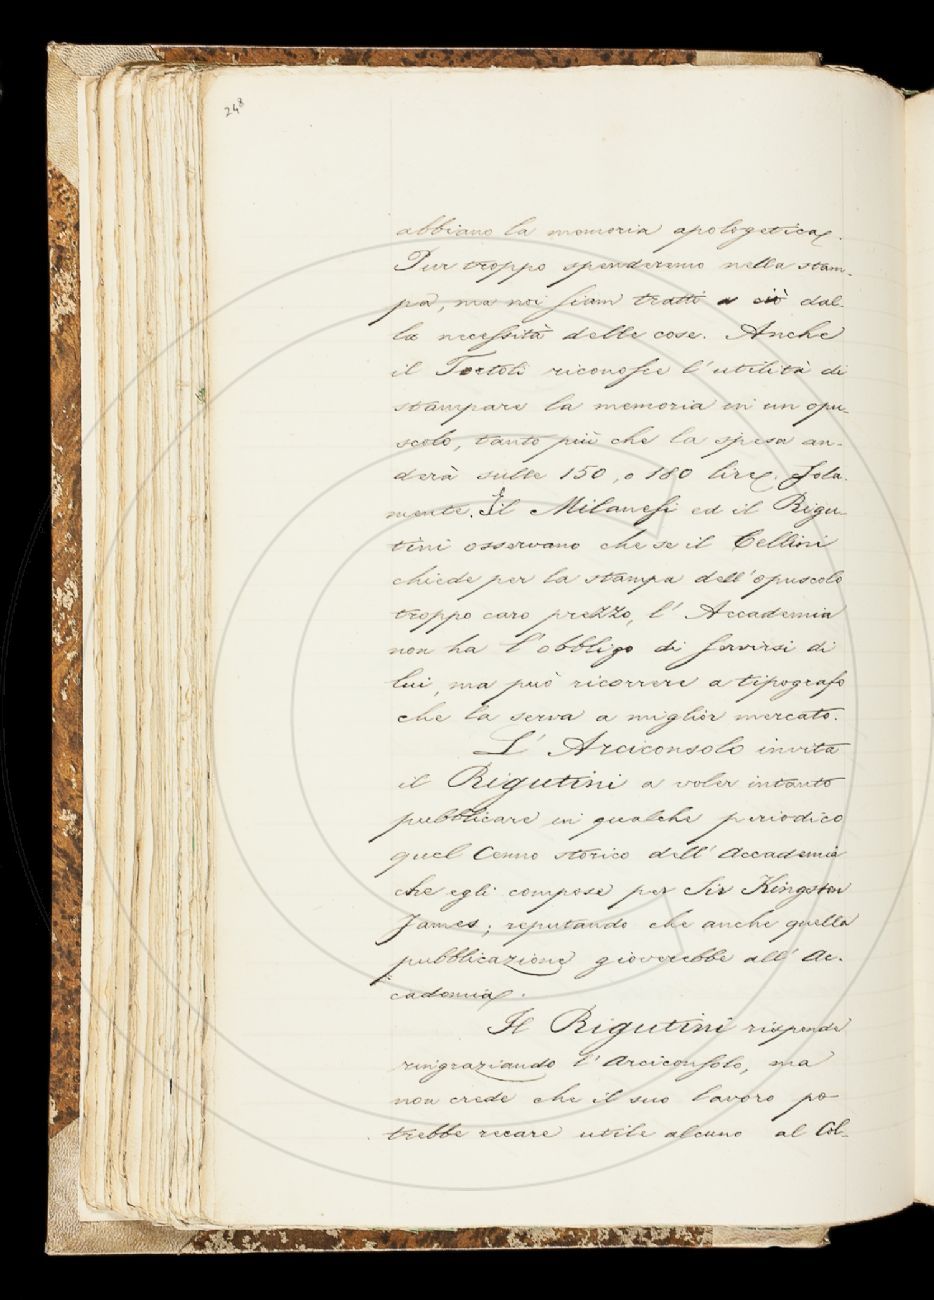 248
abbiano la memoria apologetica.
Pur troppo spenderemo nella stam-
pa, ma noi siam tratti a ciò dal-
la necessità delle cose. Anche
il Tortoli riconosce l'utilità di
stampare la memoria in un opu-
scolo, tanto più che la spesa an-
derà sulle 150, o 180 lire. sola-
mente. E il Milanesi ed il Rigu-
tini osservano che se il Cellini
chiede per la stampa dell'opuscolo
troppo caro prezzo, l'Accademia
non ha l'obbligo di servirsi di
lui, ma può ricorrere a tipografo
che la serva a miglior mercato.
L'Arciconsolo invita
il Rigutini a voler intanto
pubblicare in qualche periodico
quel Cenno storico dell'Accademia
che egli compose per Sir Kingston
James; reputando che anche quella
pubblicazione gioverebbe all'Ac-
cademia.
Il Rigutini risponde
ringraziando l'Arciconsolo, ma
non crede che il suo lavoro po-
trebbe recare utile alcuno al Col-